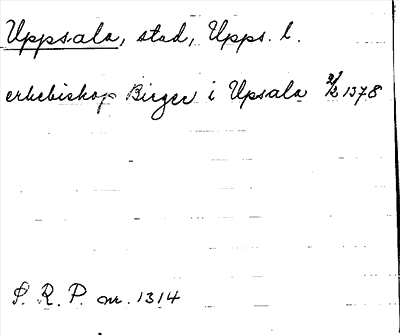 Uppsala, stad, Upps. l.
erkebiskop Birger i Upsala 2/2 1378
S. R. P. nr. 1314